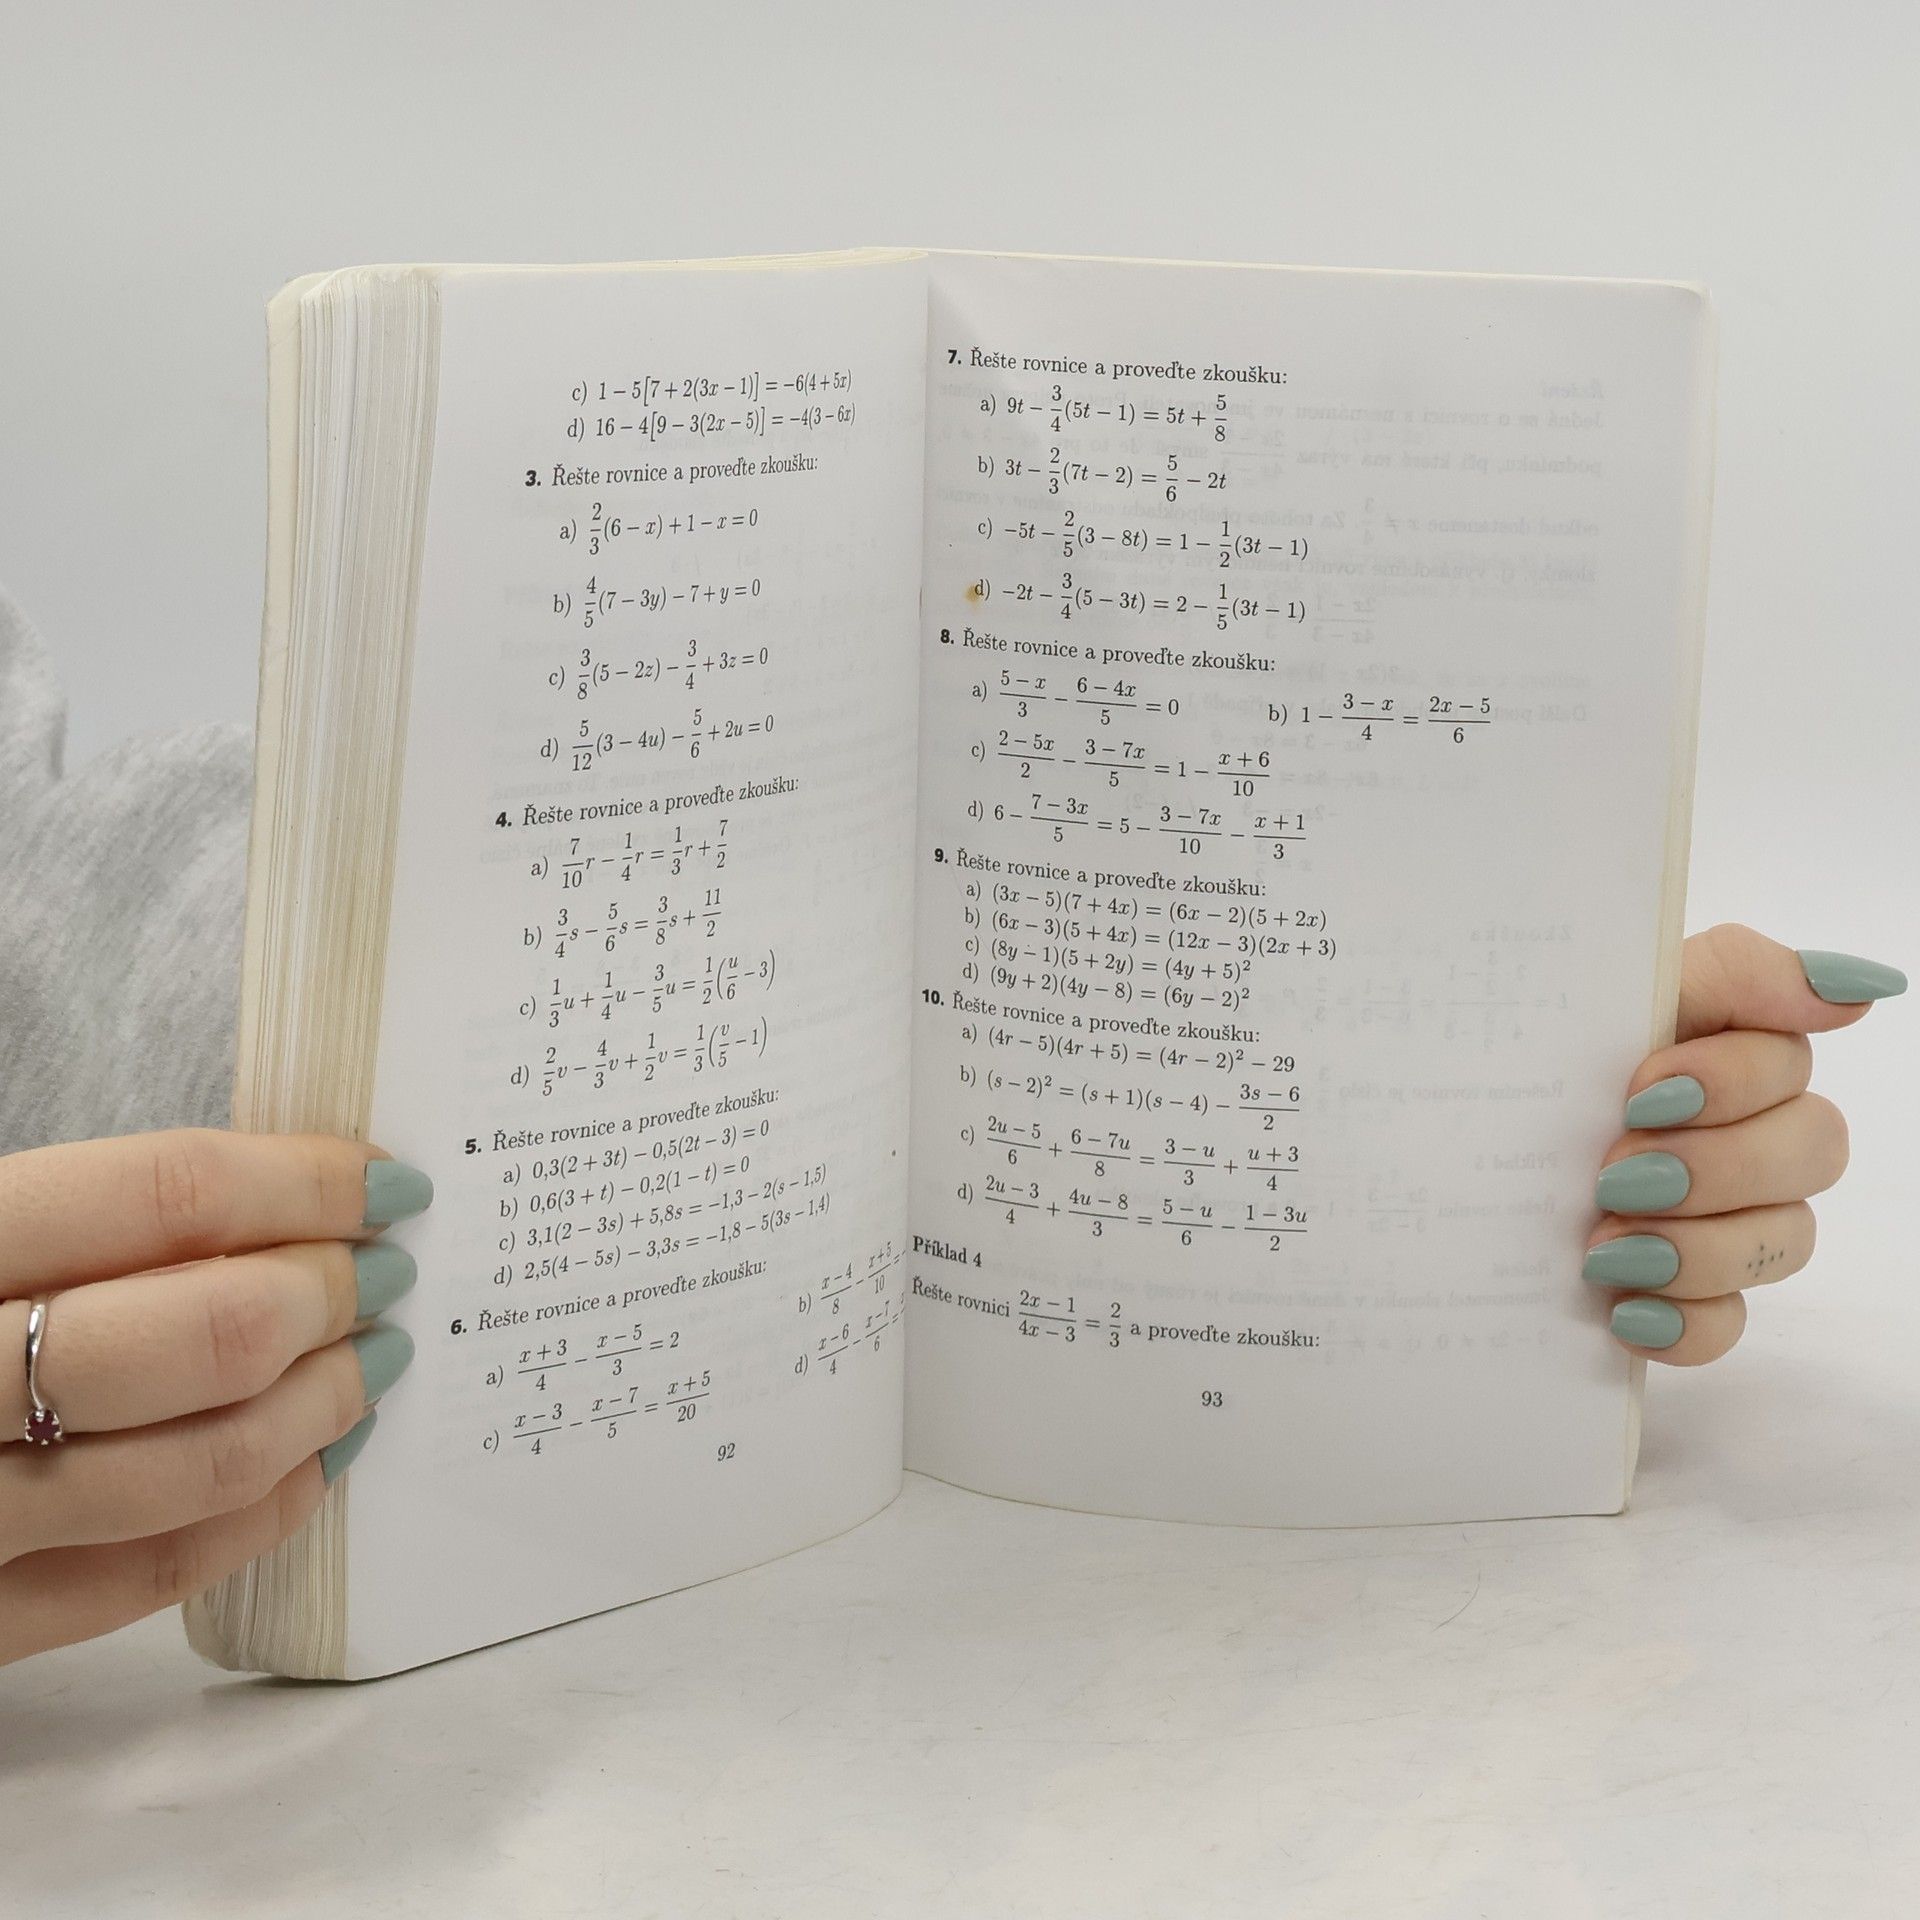 c) 1 – 5[7 + 2(3x – 1)] = –6(4 + 5x)
d) 16 – 4[9 – 3(2x – 5)] = –4(3 – 6x)
3. Řešte rovnice a proveďte zkoušku:
a) 2/3(6 – x) + 1 – x = 0
b) 4/5(7 – 3y) – 7 + y = 0
c) 3/8(5 – 2z) – 3/4 + 3z = 0
d) 5/12(3 – 4u) – 5/6 + 2u = 0
4. Řešte rovnice a proveďte zkoušku:
a) 7/10r – 1/4r = 1/3r + 7/2
b) 3/4s – 5/6s = 3/8s + 11/2
c) 1/3u + 1/4u – 3/5u = 1/2(u/6 – 3)
d) 2/5v – 4/3v + 1/2v = 1/3(v/5 – 1)
5. Řešte rovnice a proveďte zkoušku:
a) 0,3(2 + 3t) – 0,5(2t – 3) = 0
b) 0,6(3 + t) – 0,2(1 – t) = 0
c) 3,1(2 – 3s) + 5,8s = –1,3 – 2(s – 1,5)
d) 2,5(4 – 5s) – 3,3s = –1,8 – 5(3s – 1,4)
6. Řešte rovnice a proveďte zkoušku:
a) (x + 3)/4 – (x – 5)/3 = 2 b) (x – 4)/8 – (x + 5)/10 =
c) (x – 3)/4 – (x – 7)/5 = (x + 5)/20 d) (x – 6)/4 – (x – 7)/6 =
92
7. Řešte rovnice a proveďte zkoušku:
a) 9t – 3/4(5t – 1) = 5t + 5/8
b) 3t – 2/3(7t – 2) = 5/6 – 2t
c) –5t – 2/5(3 – 8t) = 1 – 1/2(3t – 1)
d) –2t – 3/4(5 – 3t) = 2 – 1/5(3t – 1)
8. Řešte rovnice a proveďte zkoušku:
a) (5 – x)/3 – (6 – 4x)/5 = 0 b) 1 – (3 – x)/4 = (2x – 5)/6
c) (2 – 5x)/2 – (3 – 7x)/5 = 1 – (x + 6)/10
d) 6 – (7 – 3x)/5 = 5 – (3 – 7x)/10 – (x + 1)/3
9. Řešte rovnice a proveďte zkoušku:
a) (3x – 5)(7 + 4x) = (6x – 2)(5 + 2x)
b) (6x – 3)(5 + 4x) = (12x – 3)(2x + 3)
c) (8y – 1)(5 + 2y) = (4y + 5)²
d) (9y + 2)(4y – 8) = (6y – 2)²
10. Řešte rovnice a proveďte zkoušku:
a) (4r – 5)(4r + 5) = (4r – 2)² – 29
b) (s – 2)² = (s + 1)(s – 4) – (3s – 6)/2
c) (2u – 5)/6 + (6 – 7u)/8 = (3 – u)/3 + (u + 3)/4
d) (2u – 3)/4 + (4u – 8)/3 = (5 – u)/6 – (1 – 3u)/2
Příklad 4
Řešte rovnici (2x – 1)/(4x – 3) = 2/3 a proveďte zkoušku:
93